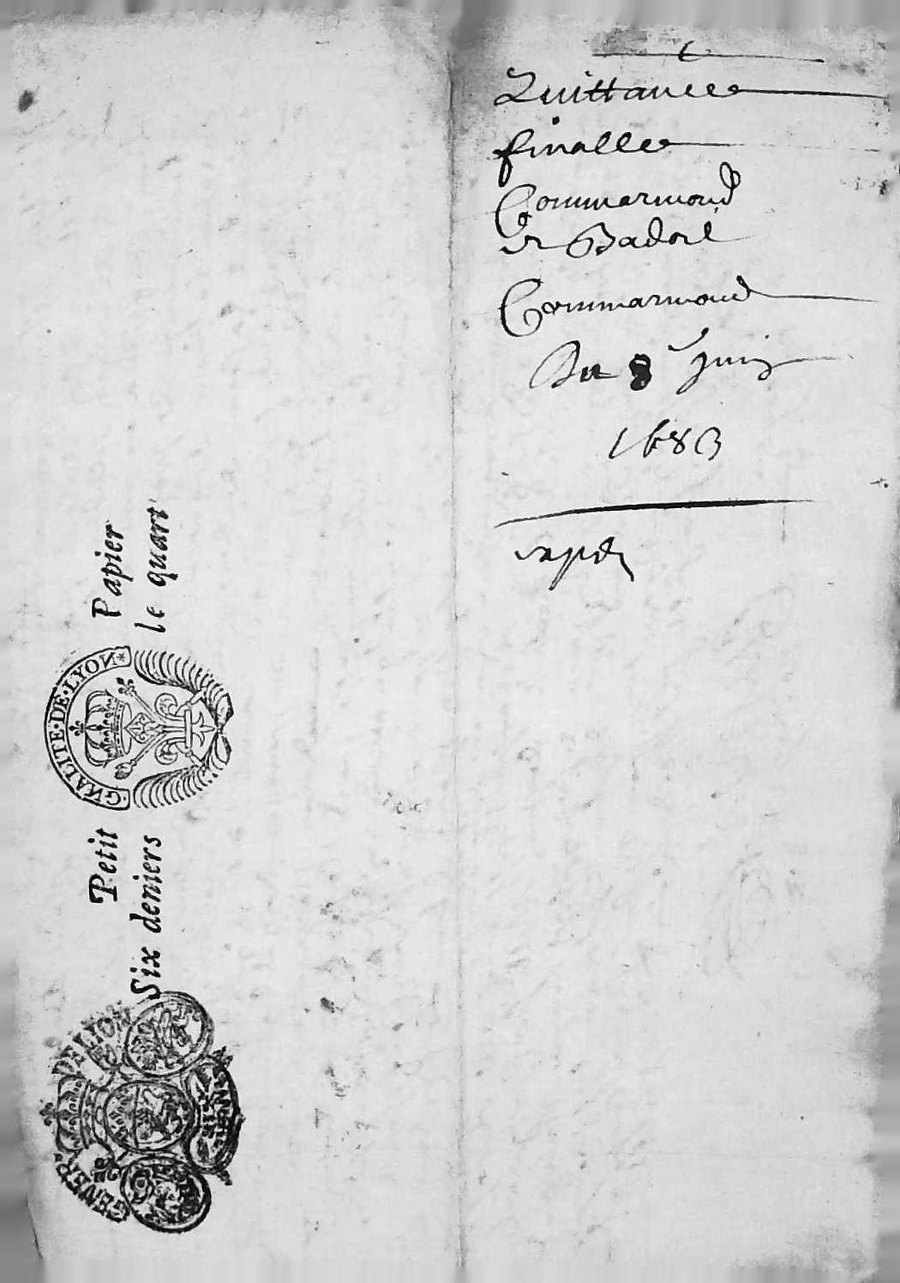 Quittance
finalle
Commarmond
et Badoil
Commarmond
Du 8 Juin
1683
expdé
Petit Papier
Six deniers le quart
GNALITE·DE·LYON*
GENER DE LION